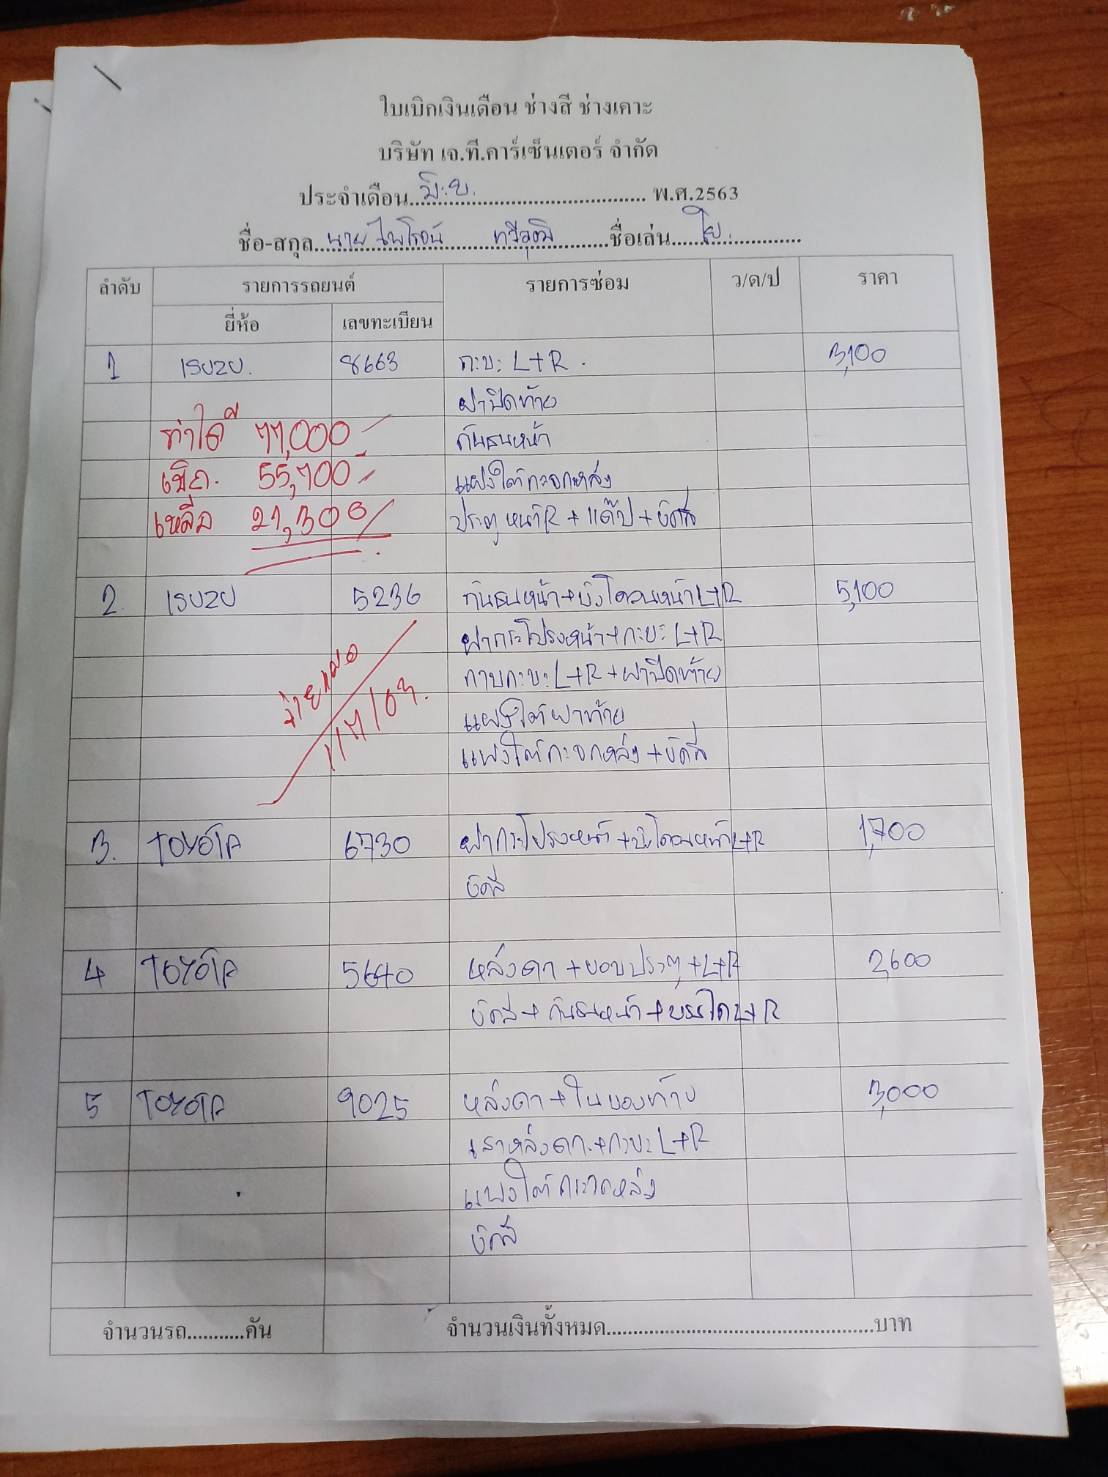 ใบเบิกเงินเดือน ช่างสี ช่างเคาะ
บริษัท เจ.ที.คาร์เซ็นเตอร์ จำกัด
ประจำเดือน..มิ.ย............................... พ.ศ.2563
ชื่อ-สกุล..นายไพโรจน์ ทวีวุฒิ.......ชื่อเล่น....ใบ...........
ลำดับ รายการรถยนต์ รายการซ่อม ว/ด/ป ราคา
ยี่ห้อ เลขทะเบียน
1 ISUZU. 8663 กะบะ L+R. 3,100
ฝาปิดท้าย
ทำได้ 77,000 กันชนหน้า
เบิก. 55,700 แผงใต้กะจกหลัง
เหลือ 21,300 ประตูหน้าR + แค๊ป + ขัดสี
2 ISUZU 5236 กันชนหน้า+บังโคลนหน้าL+R 5,100
ฝากระโปรงหน้า+กะบะ L+R
กาบกะบะ L+R + ฝาปิดท้าย
จ่ายแล้ว แผงใต้ฝาท้าย
1/7/63. แผงใต้กะจกหลัง+ขัดสี
3. TOYOTA 6730 ฝากระโปรงหน้า+บังโคลนหน้าL+R 1,700
ขัดสี
4 TOYOTA 5640 หลังคา+ขอบประตู+L+R 2,600
ขัดสี+กันชนหน้า+บันไดL+R
5 TOYOTA 9025 หลังคา+ในของท้าย 3,000
เสาหลังคา+กะบะ L+R
แผงใต้กะจกหลัง
ขัดสี
จำนวนรถ...........คัน จำนวนเงินทั้งหมด..................................................บาท